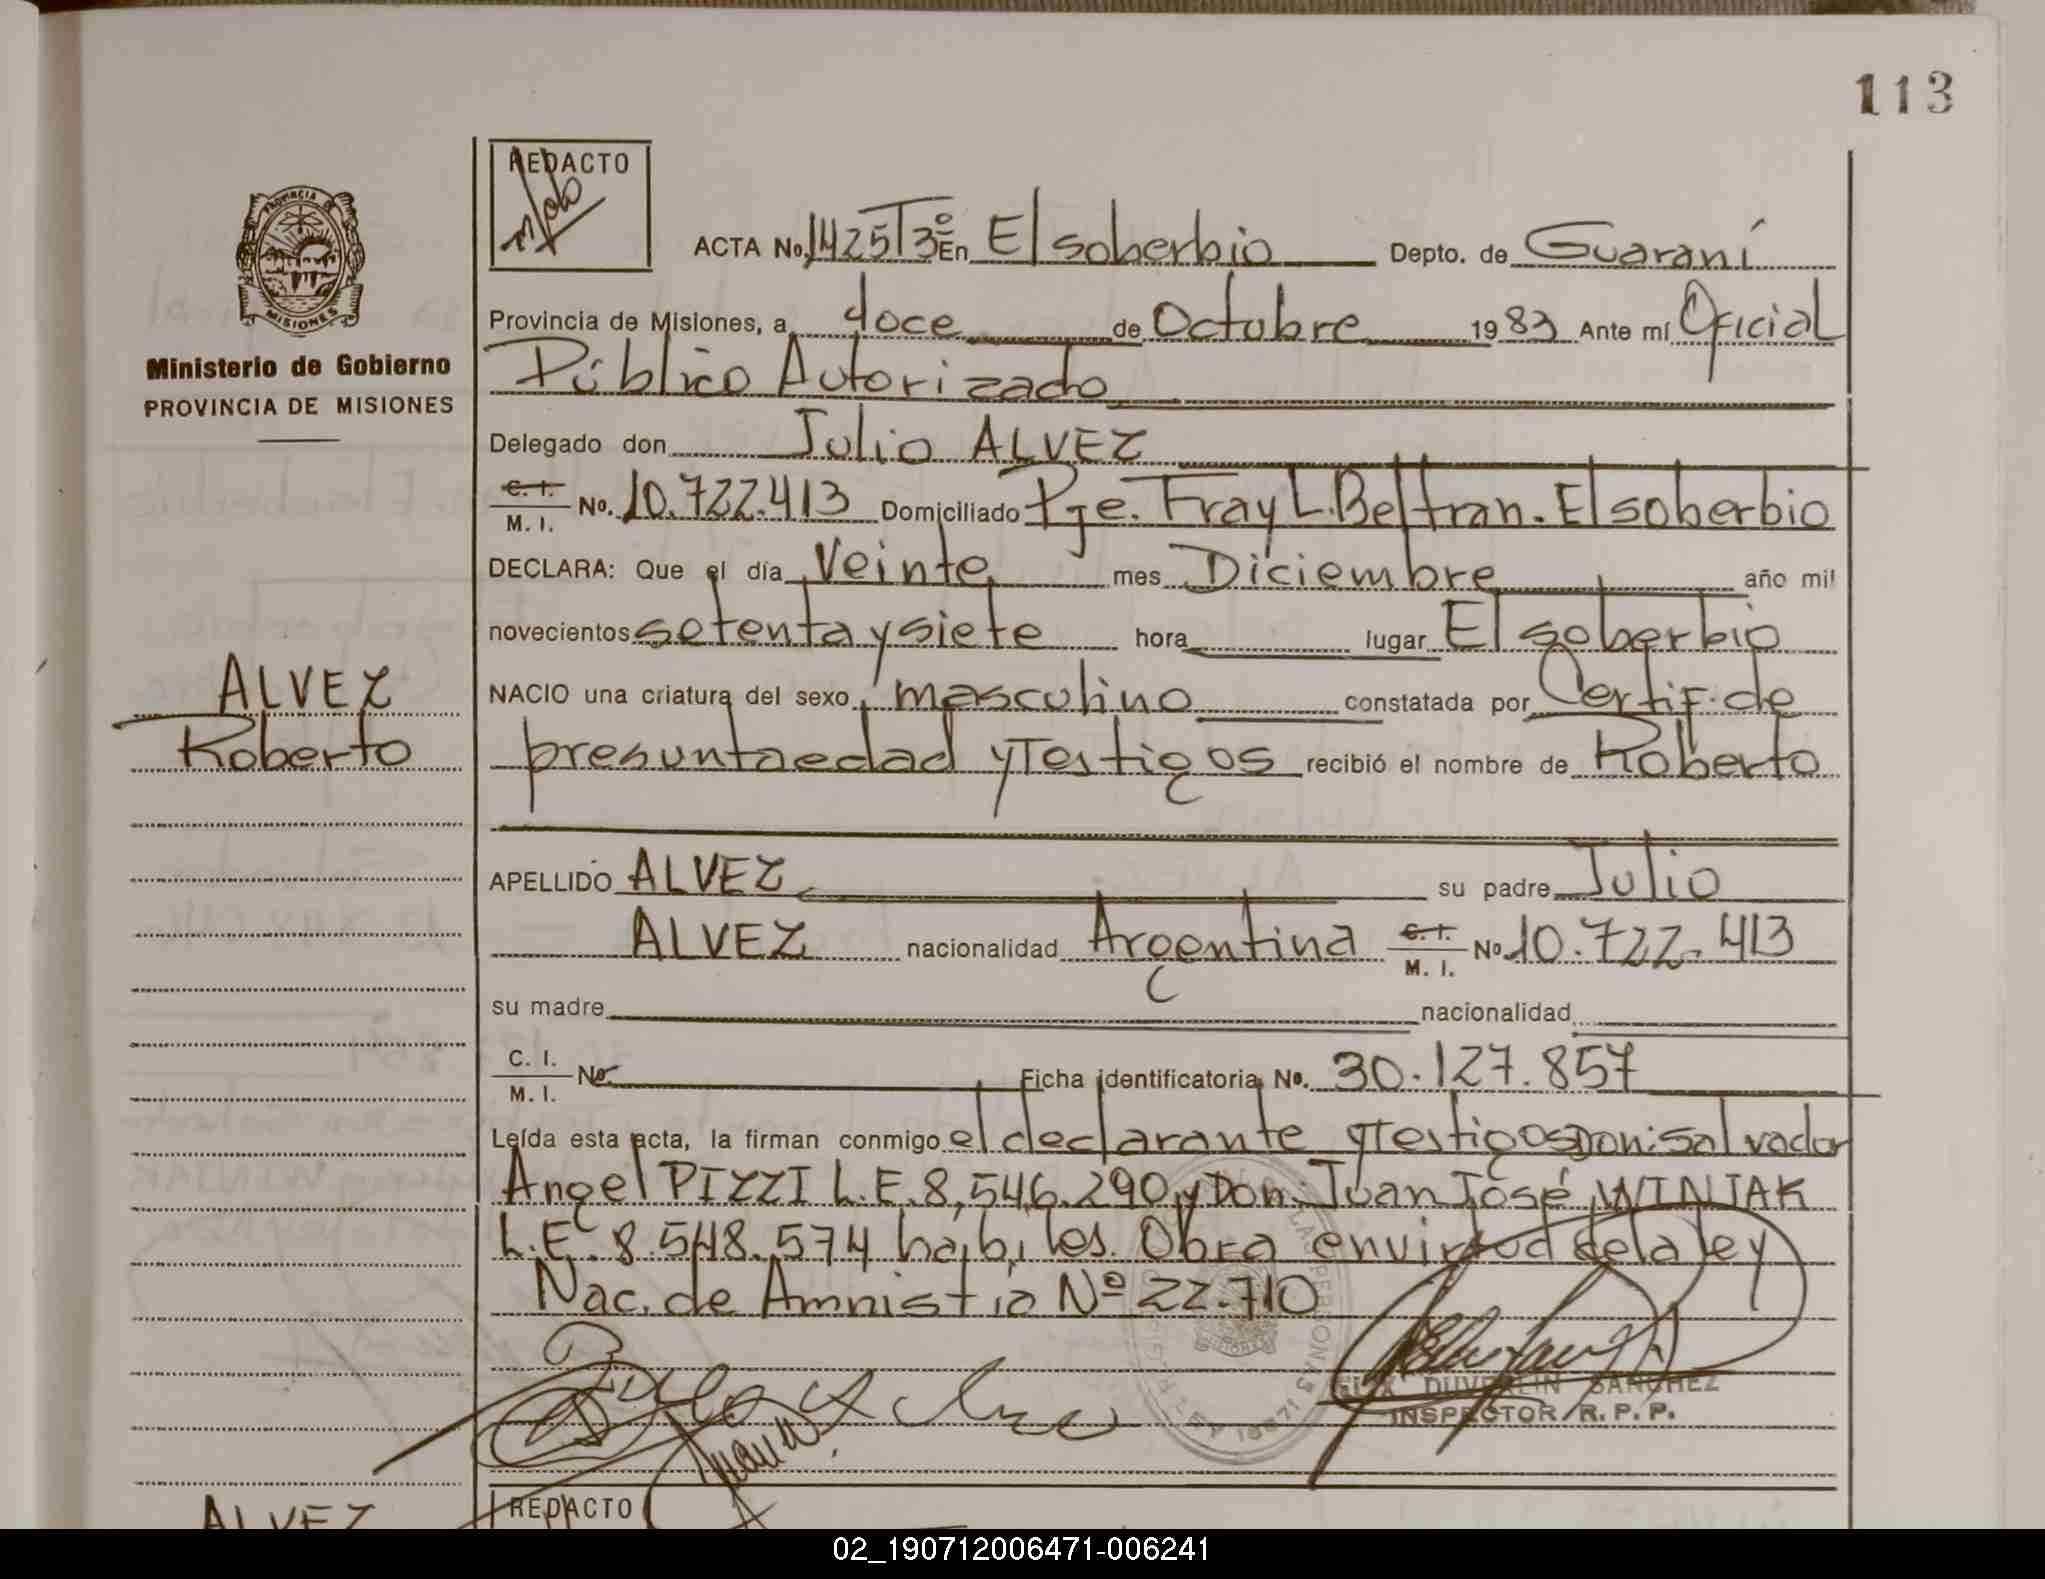 113
REDACTO
ACTA No. 1425 T3º En El soberbio Depto. de Guaraní
Provincia de Misiones, a doce de Octubre 1983 Ante mí Oficial
Público Autorizado
Ministerio de Gobierno
PROVINCIA DE MISIONES
PROVINCIA DE
MISIONES
Delegado don Julio ALVEZ
C. I. M. I. No. 10.722.413 Domiciliado Pje. Fray L. Beltran. El soberbio
DECLARA: Que el día Veinte mes Diciembre año mil
novecientos setenta y siete hora lugar El soberbio
ALVEZ
Roberto
NACIO una criatura del sexo masculino constatada por Certif. de
presunta edad y Testigos recibió el nombre de Roberto
APELLIDO ALVEZ su padre Julio
ALVEZ nacionalidad Argentina C. I. M. I. Nº 10.722.413
su madre nacionalidad
C. I. M. I. No. Ficha identificatoria No. 30.127.857
Leída esta acta, la firman conmigo el declarante y Testigos Don: Salvador
Angel PIZZI L.E. 8,546.290 y Don. Juan José WINIAK
L.E. 8.548.574 hábiles. Obra en virtud de la ley
Nac. de Amnistia Nº 22.710
DUVERLIN SANCHEZ
INSPECTOR R. P. P.
ALVEZ
REDACTO
02_190712006471-006241